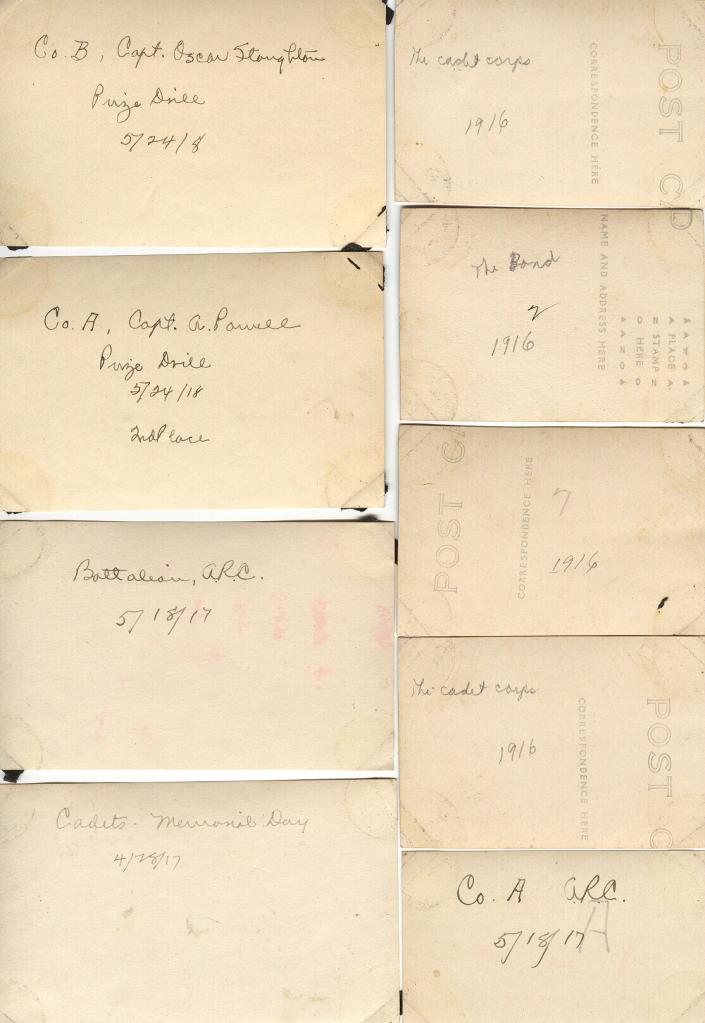 Co. B, Capt. Oscar Stoughton
Prize Drill
5/24/18
Co. A, Capt. A. Powell
Prize Drill
5/24/18
2nd Place
Battalion, A.R.C.
5/18/17
Cadets - Memorial Day
4/28/17
The cadet corps
1916
CORRESPONDENCE HERE
POST CA
The Band
1916
NAME AND ADDRESS HERE
PLACE
STAMP
HERE
POST CA
CORRESPONDENCE HERE
1916
The cadet corps
1916
CORRESPONDENCE HERE
POST C
Co. A A.R.C.
5/18/17
A